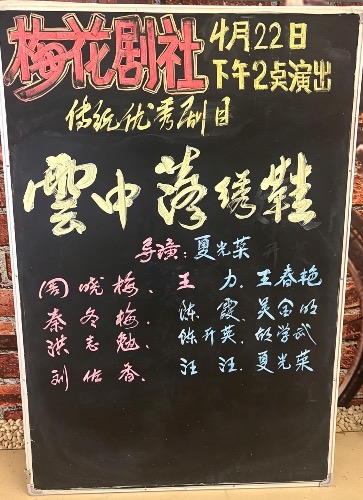 梅花剧社 4月22日
下午2点演出
传统优秀剧目
雲中落绣鞋
导演:夏光荣
周晓梅. 王力. 王春艳
秦冬梅. 陈霞. 吴金明
洪志勉. 陈开英. 胡学武
刘佐香. 汪汪. 夏光荣